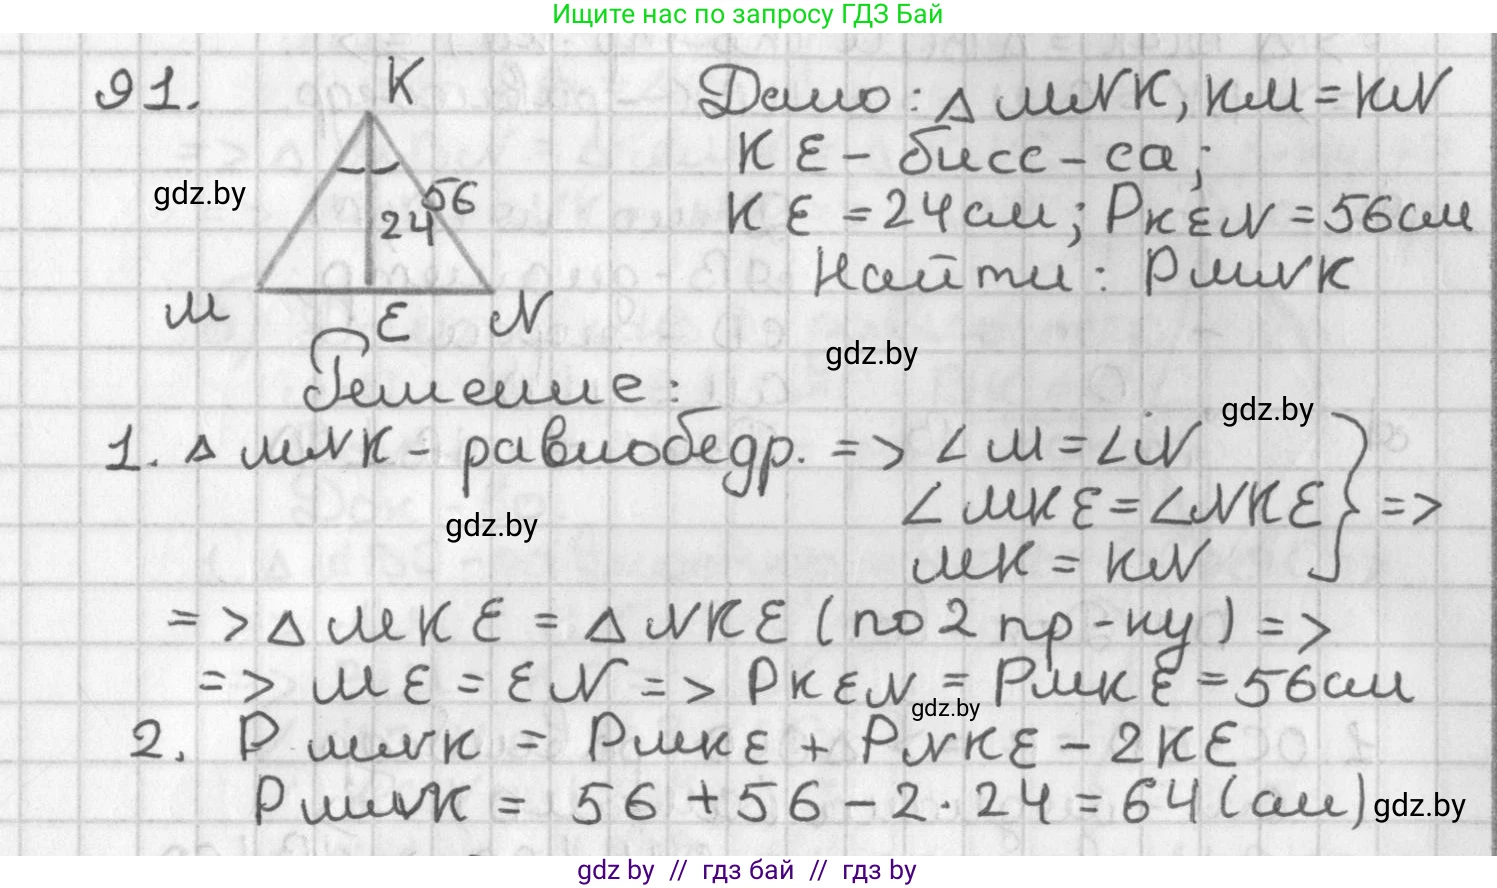 Ищите нас по запросу ГДЗ Бай
91.
K
Дано: △ MNK, KM = KN
KE - бисс-са;
gdz.by
56
24
KE = 24 см; PKEN = 56 см
Найти: PMNK
M
E
N
gdz.by
Решение:
gdz.by
1. △ MNK - равнобедр. => ∠M = ∠N
∠MKE = ∠NKE } =>
gdz.by
MK = KN
=> △ MKE = △ NKE (по 2 пр-ку) =>
=> ME = EN => PKEN = PMKE = 56 см
gdz.by
2. PMNK = PMKE + PNKE - 2KE
PMNK = 56 + 56 - 2 · 24 = 64 (см)
gdz.by
gdz.by // гдз бай // гдз by